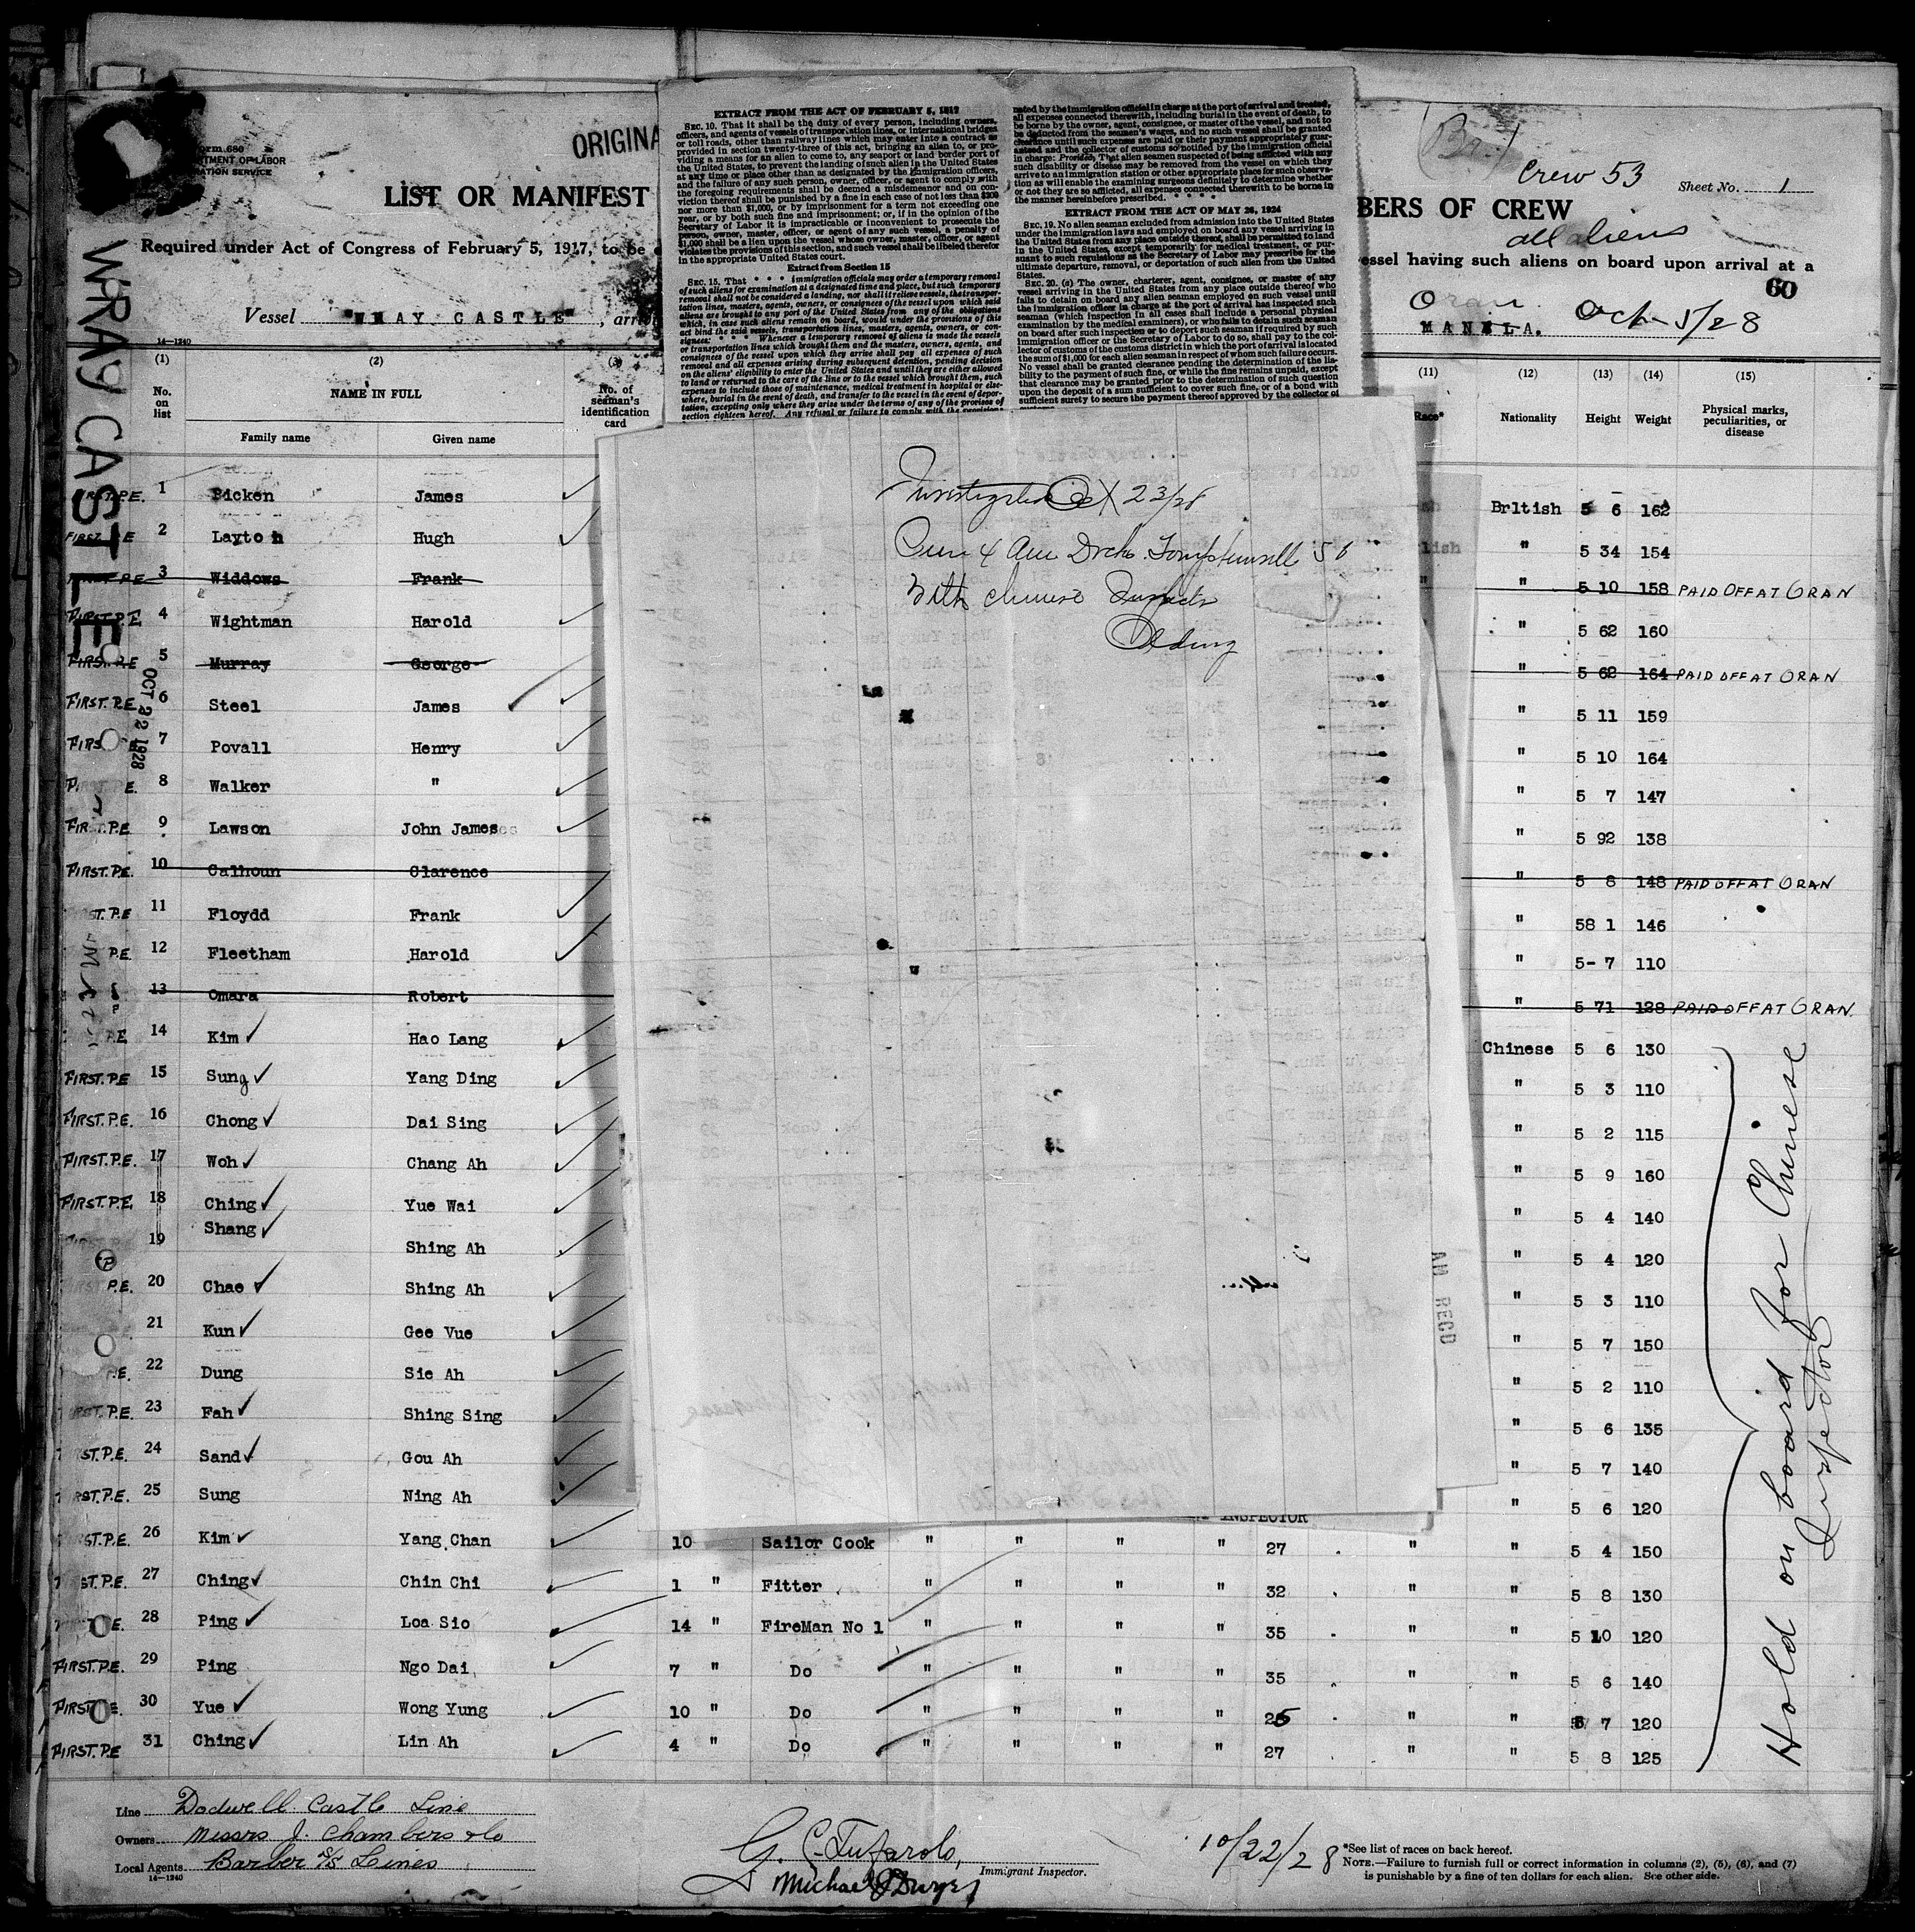 orm 680
RTMENT OF LABOR
RATION SERVICE
ORIGINA
LIST OR MANIFEST
BERS OF CREW
Crew 53
Sheet No. 1
all aliens
Required under Act of Congress of February 5, 1917, to be
essel having such aliens on board upon arrival at a
60
Vessel "WRAY CASTLE", arri
Oran Oct 5/28
MANILA.
14—1240
WRAY CASTLE
OCT 22 1928
EXTRACT FROM THE ACT OF FEBRUARY 5, 1917
SEC. 10. That it shall be the duty of every person, including owners,
officers, and agents of vessels of transportation lines, or international bridges
or toll roads, other than railway lines which may enter into a contract as
provided in section twenty-three of this act, bringing an alien to, or pro-
viding a means for an alien to come to, any seaport or land border port of
the United States, to prevent the landing of such alien in the United States
at any time or place other than as designated by the immigration officers,
and the failure of any such person, owner, officer, or agent to comply with
the foregoing requirements shall be deemed a misdemeanor and on con-
viction thereof shall be punished by a fine in each case of not less than $200
nor more than $1,000, or by imprisonment for a term not exceeding one
year, or by both such fine and imprisonment; or, if in the opinion of the
Secretary of Labor it is impracticable or inconvenient to prosecute the
person, owner, master, officer, or agent of any such vessel, a penalty of
$1,000 shall be a lien upon the vessel whose owner, master, officer, or agent
violates the provisions of this section, and such vessel shall be libeled therefor
in the appropriate United States court.
Extract from Section 15
SEC. 15. That * * * immigration officials may order a temporary removal
of such aliens for examination at a designated time and place, but such temporary
removal shall not be considered a landing, nor shall it relieve vessels, the transpor-
tation lines, masters, agents, owners, or consignees of the vessel upon which said
aliens are brought to any port of the United States from any of the obligations
which, in case such aliens remain on board, would under the provisions of this
act bind the said vessels, transportation lines, masters, agents, owners, or con-
signees: * * * Whenever a temporary removal of aliens is made the vessels
or transportation lines which brought them and the masters, owners, agents, and
consignees of the vessel upon which they arrive shall pay all expenses of such
removal and all expenses arising during subsequent detention, pending decision
on the aliens' eligibility to enter the United States and until they are either allowed
to land or returned to the care of the line or to the vessel which brought them, such
expenses to include those of maintenance, medical treatment in hospital or else-
where, burial in the event of death, and transfer to the vessel in the event of depor-
tation, excepting only where they arise under the terms of any of the provisos of
section eighteen hereof. Any refusal or failure to comply with the provisions
nated by the immigration official in charge at the port of arrival and treated,
all expenses connected therewith, including burial in the event of death, to
be borne by the owner, agent, consignee, or master of the vessel, and not to
be deducted from the seamen's wages, and no such vessel shall be granted
clearance until such expenses are paid or their payment appropriately guar-
anteed and the collector of customs so notified by the immigration official
in charge: Provided, That alien seamen suspected of being afflicted with any
such disability or disease may be removed from the vessel on which they
arrive to an immigration station or other appropriate place for such observa-
tion as will enable the examining surgeons definitely to determine whether
or not they are so afflicted, all expenses connected therewith to be borne in
the manner hereinbefore prescribed. * * * * *
EXTRACT FROM THE ACT OF MAY 26, 1924
SEC. 19. No alien seaman excluded from admission into the United States
under the immigration laws and employed on board any vessel arriving in
the United States from any place outside thereof, shall be permitted to land
in the United States, except temporarily for medical treatment, or pur-
suant to such regulations as the Secretary of Labor may prescribe for the
ultimate departure, removal, or deportation of such alien from the United
States.
SEC. 20. (a) The owner, charterer, agent, consignee, or master of any
vessel arriving in the United States from any place outside thereof who
fails to detain on board any alien seaman employed on such vessel until
the immigration officer in charge at the port of arrival has inspected such
seaman (which inspection in all cases shall include a personal physical
examination by the medical examiners), or who fails to detain such seaman
on board after such inspection or to deport such seaman if required by such
immigration officer or the Secretary of Labor to do so, shall pay to the col-
lector of customs of the customs district in which the port of arrival is located
the sum of $1,000 for each alien seaman in respect of whom such failure occurs.
No vessel shall be granted clearance pending the determination of the lia-
bility to the payment of such fine, or while the fine remains unpaid, except
that clearance may be granted prior to the determination of such question
upon the deposit of a sum sufficient to cover such fine, or of a bond with
sufficient surety to secure the payment thereof approved by the collector of
(1) (2) (3) (11) (12) (13) (14) (15)
No. on list NAME IN FULL No. of seaman's identification card Race* Nationality Height Weight Physical marks, peculiarities, or disease
Family name Given name
FIRST.P.E. 1 Bicken James British 5 6 162
FIRST P.E 2 Layton Hugh lish " 5 34 154
FIRST P.E 3 Widdows Frank " 5 10 158 PAID OFF AT ORAN
FIRST.P.E 4 Wightman Harold " 5 62 160
FIRST.P.E 5 Murray George " 5 62 164 PAID OFF AT ORAN
FIRST.P.E. 6 Steel James " 5 11 159
FIRS E. 7 Povall Henry " 5 10 164
E. 8 Walker " " 5 7 147
FIRST.P.E 9 Lawson John James " 5 92 138
FIRST.P.E. 10 Calhoun Clarence " 5 8 148 PAID OFF AT ORAN
ST.P.E 11 Floydd Frank " 58 1 146
P.E. 12 Fleetham Harold " 5- 7 110
13 Omara Robert " 5 71 128 PAID OFF AT ORAN.
P.E 14 Kim Hao Lang Chinese 5 6 130
FIRST.P.E 15 Sung Yang Ding " 5 3 110
FIRST.P.E. 16 Chong Dai Sing " 5 2 115
FIRST.P.E. 17 Woh Chang Ah " 5 9 160
FIRST.P.E. 18 Ching Yue Wai " 5 4 140
19 Shang Shing Ah " 5 4 120
P.E. 20 Chae Shing Ah " 5 3 110
21 Kun Gee Vue " 5 7 150
P.E. 22 Dung Sie Ah " 5 2 110
ST.P.E. 23 Fah Shing Sing " 5 6 135
ST.P.E. 24 Sand Gou Ah " 5 7 140
ST.P.E. 25 Sung Ning Ah " 5 6 120
INSPECTOR
ST.P.E. 26 Kim Yang Chan 10 Sailor Cook " " " " 27 " " 5 4 150
ST.P.E. 27 Ching Chin Chi 1 " Fitter " " " " 32 " " 5 8 130
E. 28 Ping Loa Sio 14 " FireMan No 1 " " " " 35 " " 5 10 120
FIRST.P.E. 29 Ping Ngo Dai 7 " Do " " " " 35 " " 5 6 140
FIRST E. 30 Yue Wong Yung 10 " Do " " " " 25 " " 7 120
FIRST.P.E 31 Ching Lin Ah 4 " Do " " " " 27 " " 5 8 125
Investigated Oct 23/28
Pier 4 Am Dock Tompkinsville S I
With chinese
AM RECD
Hold on board for Chinese
Inspector
Line Dodwell Castle Line
Owners Messrs J. Chambers & Co
Local Agents Barber S/S Lines
14—1240
Immigrant Inspector.
10/22/28
*See list of races on back hereof.
NOTE.—Failure to furnish full or correct information in columns (2), (5), (6), and (7)
is punishable by a fine of ten dollars for each alien. See other side.